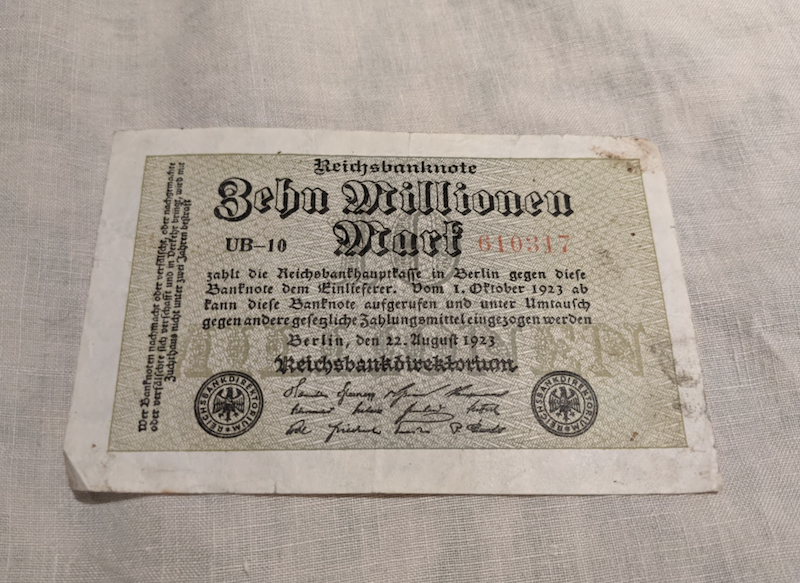 Reichsbanknote
Zehn Millionen
Mark
UB-10
610317
zahlt die Reichsbankhauptkasse in Berlin gegen diese
Banknote dem Einlieferer. Vom 1. Oktober 1923 ab
kann diese Banknote aufgerufen und unter Umtausch
gegen andere gesetzliche Zahlungsmittel eingezogen werden
Berlin, den 22. August 1923
Reichsbankdirektorium
REICHSBANKDIREKTORIUM
REICHSBANKDIREKTORIUM
Wer Banknoten nachmacht oder verfälscht, oder nachgemachte
oder verfälschte sich verschafft und in Verkehr bringt, wird mit
Zuchthaus nicht unter zwei Jahren bestraft